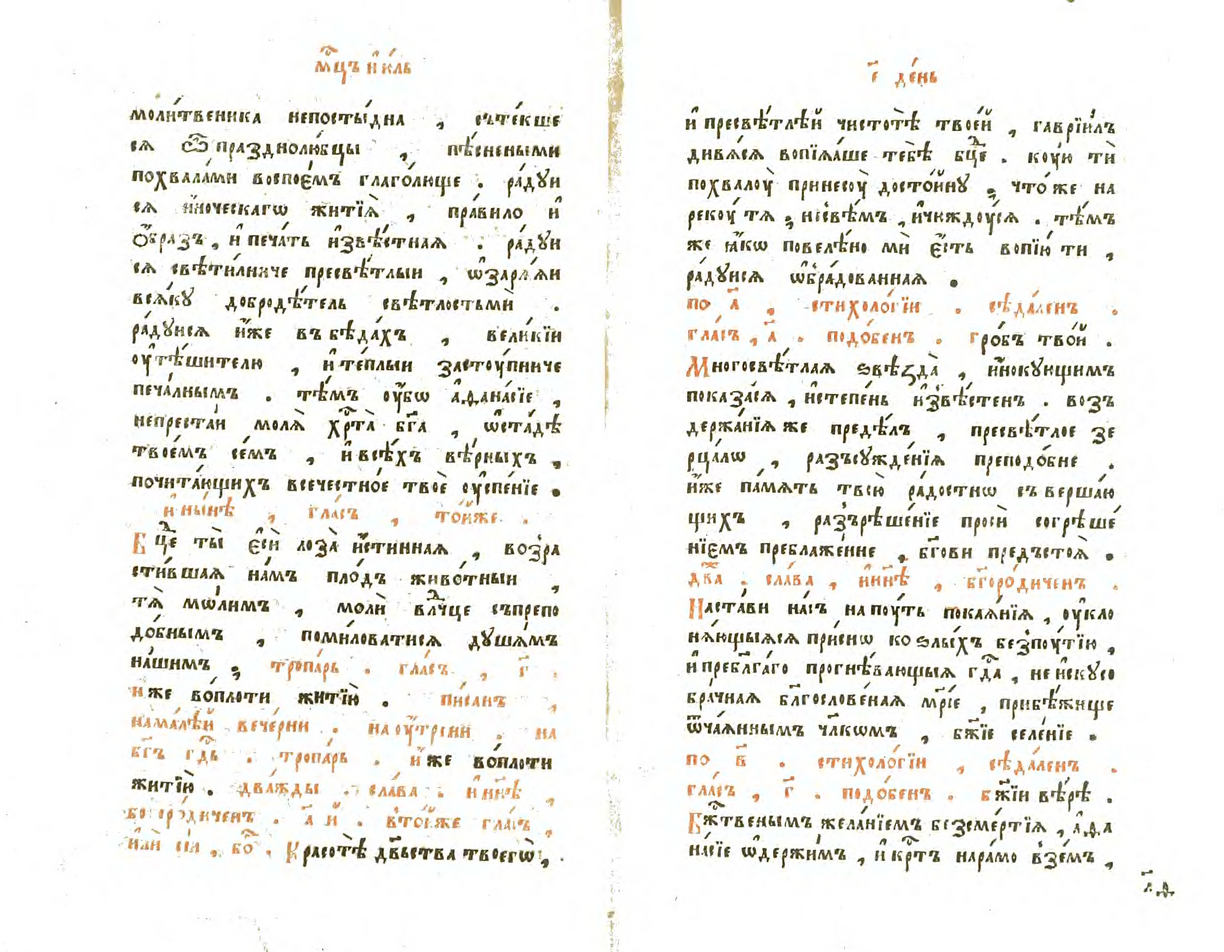 мⷭ҇цъ и҆ю́ль
моли́твеника непосты́дна , сътекше
сѧ ѿ празднолю́бцы , пѣ́сненыими
похвала́ми воспоє́мъ глаго́люще . ра́дꙋи
сѧ и҆ноческагѡ житїѧ̀ , пра́вило и҆
ѻ҆́бразъ , и҆ печа́ть и҆звѣ́стнаѧ . ра́дꙋи
сѧ свѣти́лниче пресвѣ́тлыи , ѡ҆зарѧ́ѧи
всѧ́кꙋ добродѣ́тель свѣ́тлостьми .
ра́дꙋисѧ и҆́же въ бѣда́хъ , вели́кїи
оу҆тѣ́шителю , и҆ те́плыи застоу́пниче
печа́лнымъ . тѣ́мъ оу҆́бѡ а҆ѳана́сїе ,
непреста́и молѧ̀ хрⷭ҇та̀ бг҃а , ѡ҆ ста́дѣ
твоє́мъ се́мъ , и҆ всѣ́хъ вѣ́рныхъ ,
почита́ющихъ всечестно́е твоѐ оу҆спе́нїе .
и҆ ны́нѣ , гла́съ , то́йже .
Бцⷣе ты̀ є҆сѝ лоза̀ и҆́стиннаѧ , возра
сти́вшаѧ на́мъ пло́дъ живо́тныи ,
тѧ̀ мо́лимъ , молѝ влⷣчце съ препо
до́бнымъ , помиловатисѧ дꙋша́мъ
на́шимъ , тропа́рь . гла́съ , г҃ .
и҆́же во́плоти житїю̀ . пи́санъ ,
на ма́лѣй вече́рни . на оу҆́трени . на
бг҃ъ гдⷭ҇ь . тропа́рь . и҆́же во́плоти
житїю̀ . два́жды . сла́ва . и҆ нн҃ѣ ,
богоро́диченъ . а҃ и҆ . вто́йже гла́съ ,
и҆лѝ сїѧ̀ , бо҃ . Красотѣ̀ дв҃ьства твоегѡ̀ ,
є҃ де́нь
и҆ пресвѣ́тлѣй чистотѣ̀ твое́й , гаврїи́лъ
дивѧ́сѧ вопїѧ́ше тебѣ̀ бцⷣе . коу́ю тѝ
похвалоу̀ принесоу̀ досто́йнꙋ , что́ же на
рекоу̀ тѧ , не свѣ́мъ , и҆ чюждоу́сѧ . тѣ́мъ
же ꙗ҆́кѡ повелѣ́но мѝ є҆́сть вопїю̀ ти ,
ра́дꙋисѧ ѡ҆бра́дованнаѧ .
по а҃ , стихоло́гїи . сѣда́ленъ .
гла́съ , а҃ . подо́бенъ . гро́бъ тво́й .
Многосвѣ́тлаѧ ѕвѣзда̀ , и҆́нокꙋющимъ
показа́сѧ , и҆ степе́нь и҆звѣ́стенъ . воз
держа́нїѧ же предѣ́лъ , пресвѣ́тлое зе
рца́лѡ , разъсꙋжде́нїѧ преподо́бне .
и҆́же па́мѧть твою̀ ра́достїю съвершаю
щихъ , разърѣше́нїе просѝ согрѣше́
нїємъ преблаже́нне , бг҃ови предъстоѧ̀ .
два . сла́ва , и҆ нн҃ѣ , бг҃оро́диченъ .
Наста́ви на́съ на поу́ть покаѧ́нїѧ , оу҆кло
нѧ́ющыѧсѧ при́снѡ ко ѕлы́хъ безпоу́тїю ,
и҆ пребл҃га́го прогнѣ́вающыѧ гдⷭ҇а , неи҆скꙋсо
бра́чнаѧ блг҃ослове́наѧ мр҃і́е , прибѣ́жище
ѿча́ѧннымъ чл҃кѡмъ , бж҃їе селе́нїе .
по в҃ . стихоло́гїи , сѣда́ленъ .
гла́съ , г҃ . подо́бенъ . бж҃їи вѣ́рѣ .
Бжⷭ҇твенымъ жела́нїемъ безсме́ртїѧ , а҆ѳа
на́сїе ѡ҆держи́мъ , и҆ крⷭ҇тъ на ра́мо взе́мъ ,